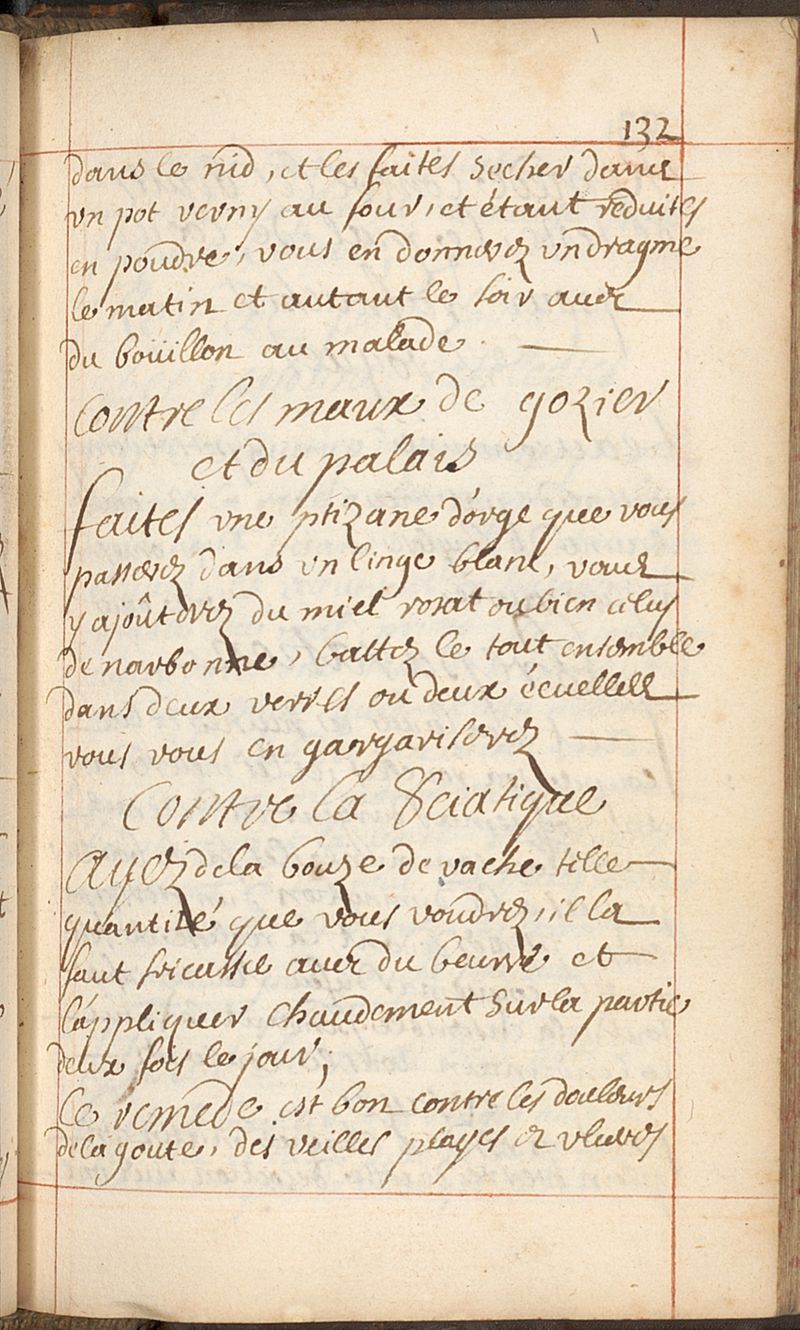 132
dans le nid, et les faites secher dans
vn pot verny au four, et étant reduites
en poudre, vous en donnerez vn dragme
le matin et autant le soir avec
du boüillon au malade.
Contre les maux de gozier
et du palais
faites vne ptizane d'orge que vous
passerez dans vn linge blanc, vous
y ajoûterez du miel rosat ou bien celuy
de narbonne, battez le tout ensemble
dans deux verres ou deux écuelles
vous vous en gargariserez
Contre la Sciatique
Ayez de la bouze de vache telle
quantité que vous voudrez, il la
faut fricassée avec du beurre et
l'áppliquer chaudement sur la partie
deux fois le jour,
Ce remede est bon contre les douleurs
de la goute, des veilles playes et vlceres